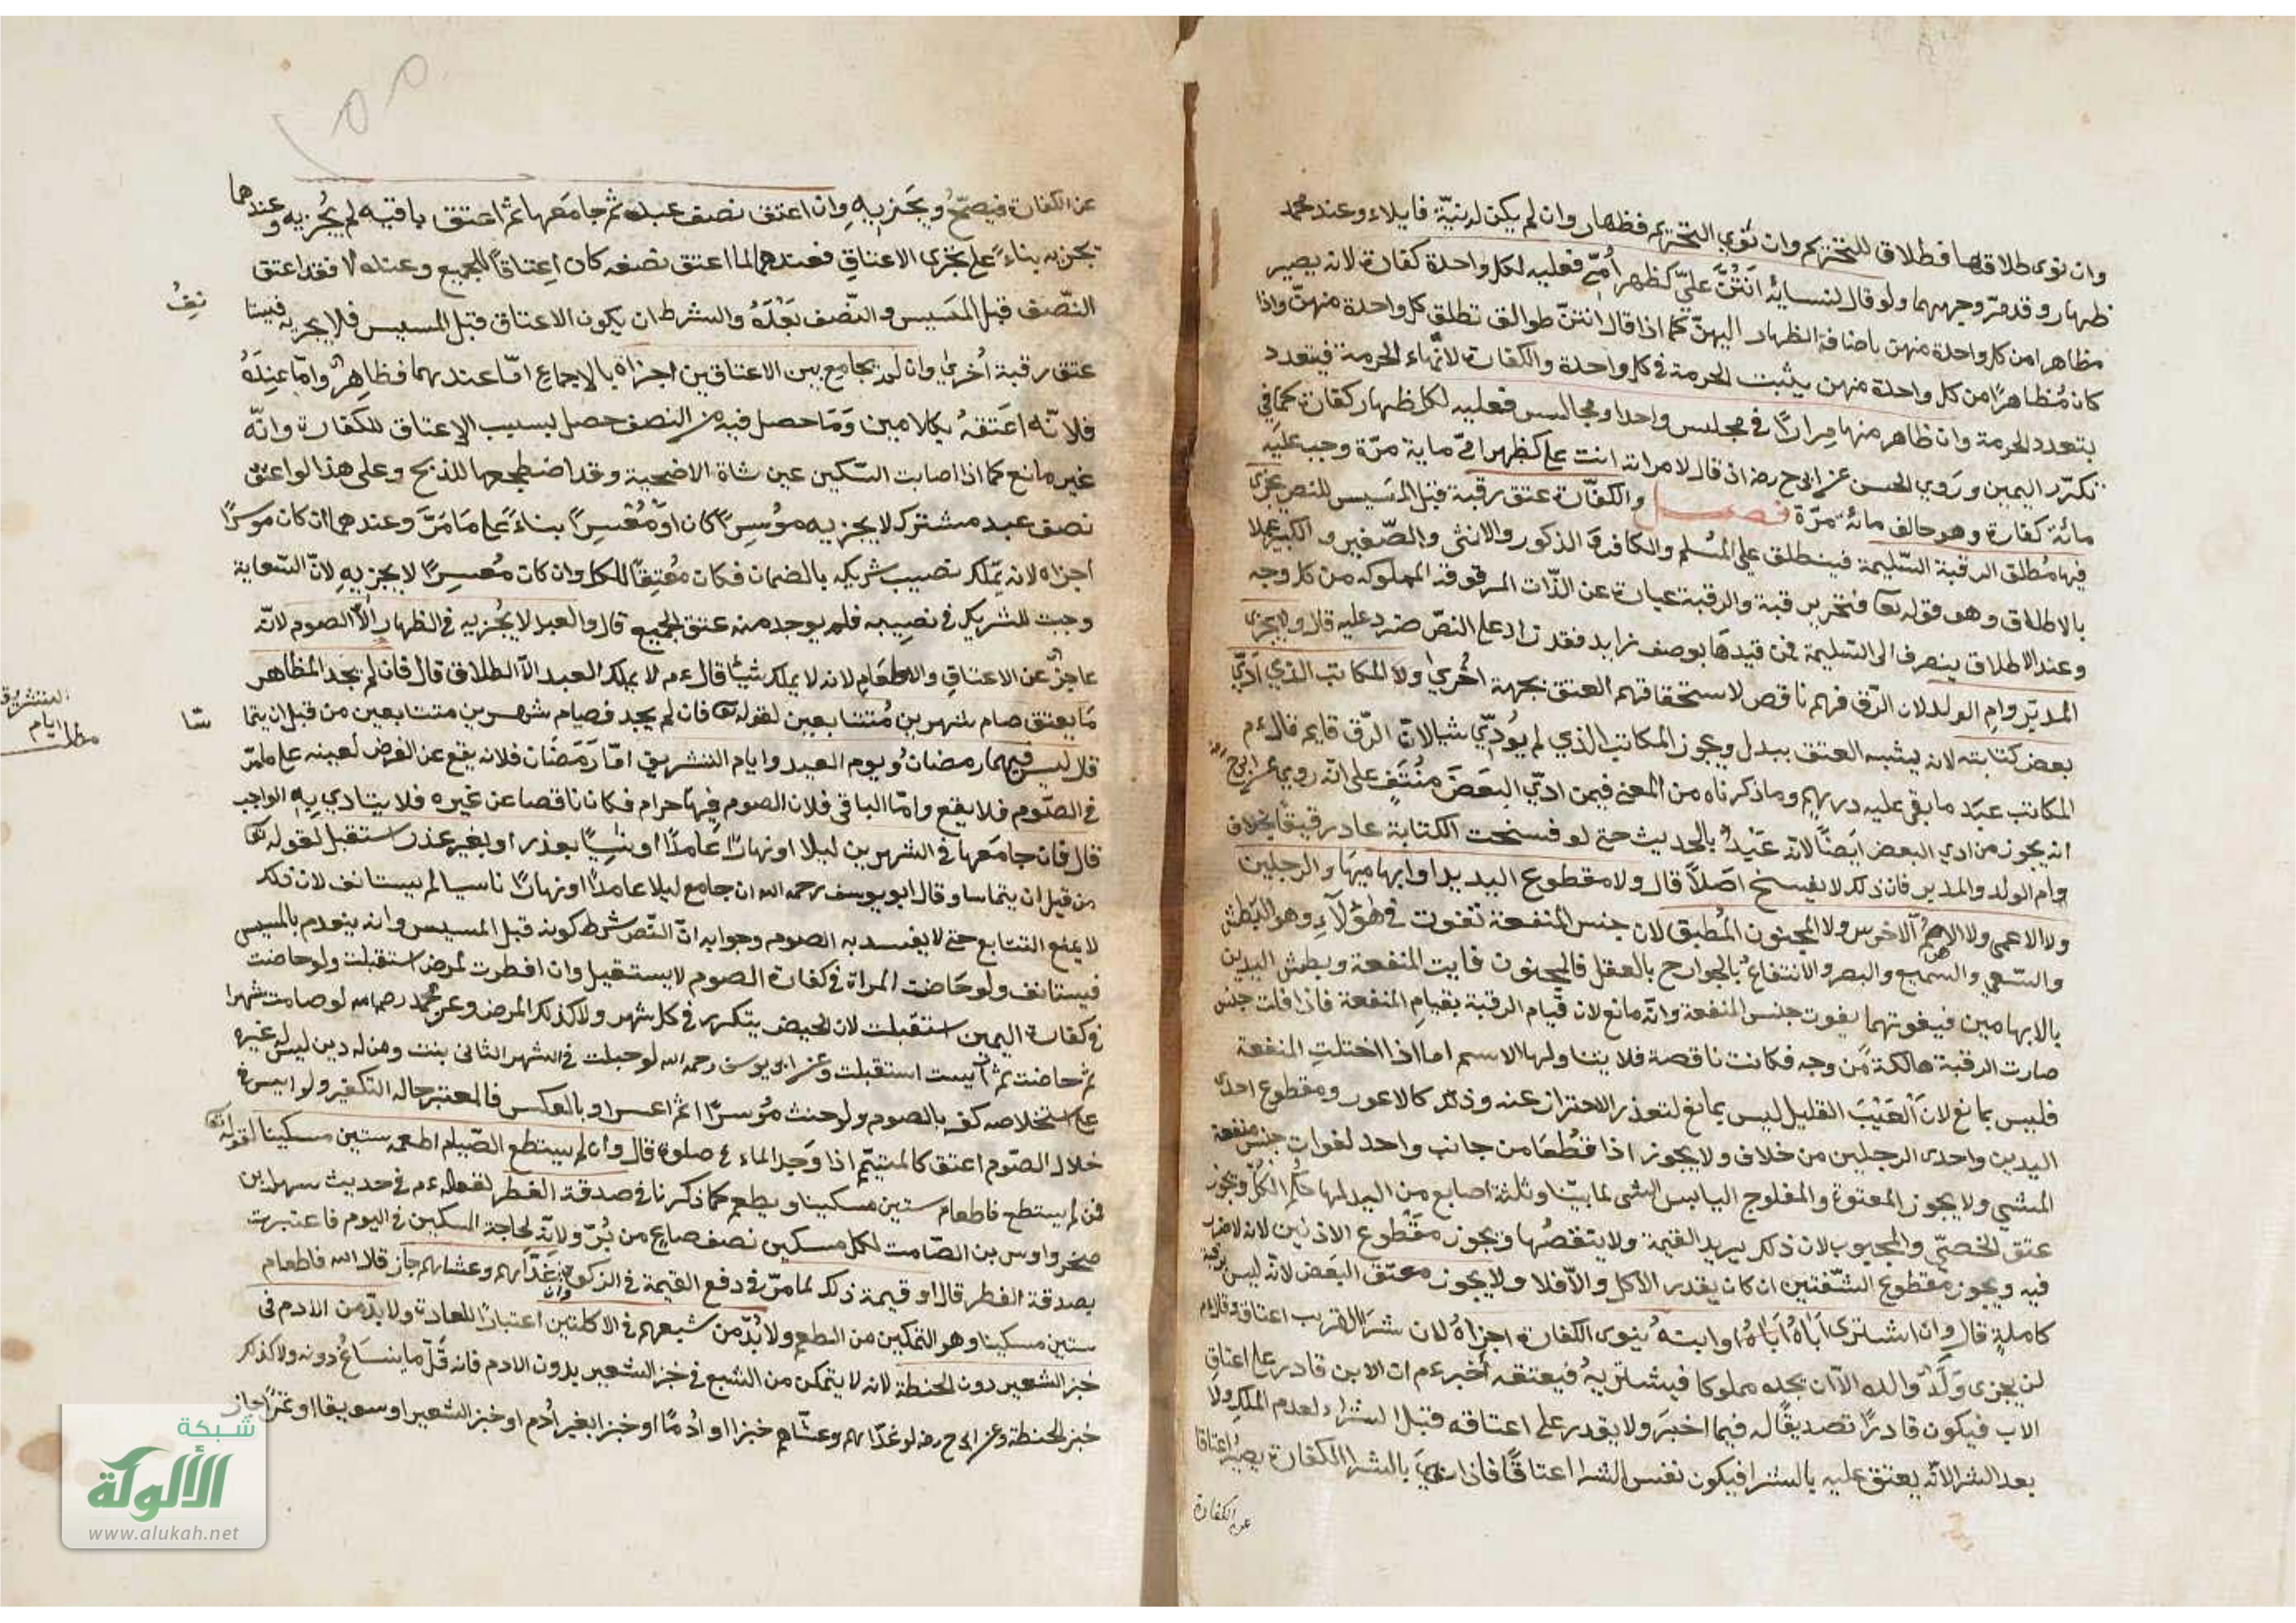 وان نوى طلاقها فطلاق للتحريم وان نوى التحريم فظهار وان لم يكن له نية فايلاء وعند محمد
ظهار وقد مرّ وجههما ولو قال لنسائه أَنْتُنَّ عليّ كظهر أمّي فعليه لكل واحدة كفارة لانه يصير
مظاهرا من كل واحدة منهن باضافة الظهار اليهنّ كما اذا قال انتنّ طوالق تطلق كل واحدة منهنّ واذا
كان مُظاهرًا من كل واحدة منهن يثبت الحرمة في كل واحدة والكفارة لانهاء الحرمة فيتعدد
بتعدد الحرمة وان ظاهر منها مِرارًا في مجلس واحد او مجالس فعليه لكل ظهار كفارة كما في
تكرّر اليمين وروي الحسن عن ابي ح رضه اذ قال لامراته انت علي كظهر امّي ماية مرّة وجب عليه
مائة كفارة وهو حالف مائة مرّة فصل والكفّارة عتق رقبة قبل المَسيس للنص يجزي
فيها مُطلق الرقبة السّليمة فينطلق على المُسلم والكافر والذكور والانثى والصّغير والكبير عملا
بالاطلاق وهو قوله تعا فتحرير رقبة والرقبة عبارة عن الذّات المرقوقة المملوكه من كل وجه
وعند الاطلاق ينصرف الى السّليمة فمن قيدها بوصف زايد فقد زاد على النصّ ضرد عليه قال ولا يجزى
المدبّر وام الولد لان الرّق فيهم ناقص لاستحقاقهم العتق بجهة اخرى ولا المكاتب الذي ادّي
بعض كتابته لانه يشبه العتق ببدل ويجوز المكاتب الذي لم يُؤدّي شيا لانّ الرّق قايم قال ءم
المكاتب عبَد ما بقي عليه درهم وما ذكرناه من المعنى فيمن ادّي البعضَ مُنْتَفٍ على انّه روي عن ابي ح
انه يجوز من ادي البعض ايضًا لانّه عَبْدٌ بالحديث حتى لو فسخت الكتابة عاد رقيقًا بخلاف
وام الولد والمدبر فان ذلك لا ينفسخ اصلاً قال ولا مقطوع اليدين او ابهاميهَا والرجلين
ولا الاعمى ولا الاصمّ الاخرس ولا المجنون المُطبق لان جنس المنفعة تفوت في هؤلاءِ وهو البطش
والسّعي والسّمع والبصر والانتفاعُ بالجوارح بالعقل فالمجنون فايت المنفعة وبطش اليدين
بالابهامين فبفوتهما يفوت جنس المنفعة وانّه مانع لان قيام الرقبة بقيامِ المنفعة فاذا فات جنس
صارت الرقبة هالكة من وجه فكانت ناقصة فلا يتناولها الاسم اما اذا اختلتِ المنفعة
فليس بمانع لانّ العَيْبَ القليل ليس بمانع لتعذر الاحتراز عنه وذلك كالاعور ومقطوع احدى
اليدين واحدى الرجلين من خلاف ولا يجوز اذا قطعَا من جانب واحد لفوات جنس منفعة
المشي ولا يجوز المعتوة والمفلوج اليابس الشي لما بيّنا وثلثة اصابع من اليد لها حُكم الكلّ ويجوز
عتق الخصيّ والمجبوب لان ذلك يريد القيمة ولا ينقصُها ويجوز مَقْطوع الاذنين لانه لا ضرر
فيه ويجوز مقطوع الشّفتين ان كان يقدر الاكل والّا فلا ولا يجوز معتق البعَض لانّه ليس برقبة
كاملةٍ قال وان اشترى اباهُ او ابنهُ ينوى الكفارة اجزاهُ لان شرَا القريب اعتاق قال ءم
لن يجزى وَلَدٌ والده الّا ان يجده مملوكا فيشتريهُ فيعتقه أخبر ءم ان الابن قادر على اعتاقِ
الاب فيكون قادرًا تصديقًا له فيما اخبَر ولا يقدر على اعتاقه قبل الشراء لعدم الملك ولا
بعد الشرا لانّه يعتق عليه بالشرا فيكون نفس الشرا اعتاقًا فاذا نويَ بالشرا الكفارة يصيرُ اعتاقا
عن الكفارة
عن الكفارة فيصحّ ويجزيهِ وان اعتق نصف عبده ثم جامَعها ثم اعتق باقيه لم يُجزيه وعندهما
يجزيه بناءً على تجزى الاعتاق فعندهما لما اعتق نصفه كان اِعتاقاً للجميع وعنده لا فقد اعتق
النّصف قبل المَسِيس والنّصف بَعْدَهُ والشرط ان يكون الاعتاق قبل المسيس فلا يجزيه فيستا
نِفُ
عتق رقبة اُخرى وان لم يجامع بين الاعتاقين اجزاه بالاجماع امّا عندهما فظاهِرٌ وامّا عِندَهُ
فلانّه اعَتقهُ بكلامين وَمَا حصل فيه من النصف حصل بسبب الاعتاق للكفارة وانّه
غير مانع كما اذا اصابت السّكين عين شاة الاضحية وقد اضطجعها للذبح وعلى هذا لو اعتق
نصف عبد مشترك لا يجزيه مُوسِرًا كان اَوْ مُعْسِرًا بناءً على مَا مَرَّ وعندهما ان كان موسرًا
اجزاه لانه يملك نصيب شريكه بالضمان فكان مُعتِقًا للكل وان كان معُسِرًا لا يجزيهِ لانّ السّعاية
وجبت للشريك في نصيبه فلم يوجد منه عتق الجميع قال والعبد لا يُجزيه في الظهار الّا الصوم لانّه
عاجزٌ عن الاعتاقِ والاطعَامِ لانه لا يملك شيئًا قال ءم لا يملك العبد الّا الطلاق قال فان لم يجد المظاهر
مَا يعتق صام شهرين مُتتابعين لقوله تعا فان لم يجد فصيام شهرين متتابعين من قبل ان يتما
سّا
قال ليس فيهما رمضان ويوم العيد وايام التشريق امّا رَمَضَان فلانه يقع عن الفرض لعينه على ما مرّ
التشريق
مطلب ايام
في الصّوم فلا يقع وامّا الباقى فلان الصوم فيها حرام فكان ناقصا عن غيره فلا يتادي بِه الواجب
قال فان جامَعها في الشهرين ليلا او نهارًا عَامدًا او ناسِيًا بعذر او بغير عذر استقبل لقوله تعا
من قبل ان يتماسا وقال ابو يوسف رحمه الله ان جامع ليلا عامدًا او نهارًا ناسيا لم يستانف لان ذلك
لا يمنع التتابع حتى لا يفسد به الصوم وجوابه انّ النّص شرط كونه قبل المسيس وانه ينعدم بالمسيس
فيستانف ولو حَاضت المراة في كفارة الصوم لا يستقبل وان افطرت لمرض استقبلت ولو حاضت
في كفارة اليمين استقبلت لان الحيض يتكرر في كل شهر ولا كذلك المرض وعن محمد رحمه الله لو صامت شهرا
ثم حاضت ثم ايست استقبلت وعن ابي يوسف رحمه الله لو حبلت في الشهر الثاني بنت ومن له دين ليس له غيره
على استخلاصه كفر بالصوم ولو حنث مُوسرًا ثم اعسر او بالعكس فالمعتبر حاله التكفير ولو ايسر في
خلال الصّوم اعتق كالمتيمّم اذا وَجد الماء في صلوة قال وان لم يستطع الصّيام اطعم ستين مسكينا لقوله تعا
فمن لم يستطع فاطعام ستين مسكينا ويطعم كما ذكرنا في صدقة الفطر لقوله ءم في حديث سهل بن
صخر واوس بن الصّامت لكل مسكين نصف صاعٍ من بُرّ ولانّه لحاجة المسكين في اليوم فاعتبرت
بصدقة الفطر قال او قيمة ذلك لما مرّ في دفع القيمة في الزكوة فان غَدّاهم وعشاهم جاز قال الله فاطعام
ستين مسكينا وهو التمكين من الطعم ولا بُدّ من شبعهم في الاكلتين اعتبارًا للعادة ولا بدّ من الادم في
خبز الشعير دون الحنطة لانه لا يتمكن من الشبع في خبز الشعير بدون الادم فانه قلّ ما ينسَاغُ دونه ولا كذلك
خبز الحنطة وعن ابي ح رضه لو غدّاهم وعشّاهم خبزا او اُدْمًا او خبزا بغير اُدم او خبز الشعير او سويقا او تمرًا جاز
شبكة
الألوكة
www.alukah.net